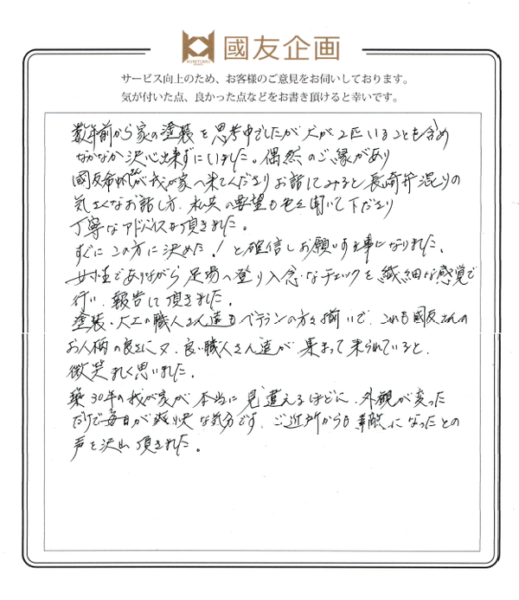 國友企画
サービス向上のため、お客様のご意見をお伺いしております。
気が付いた点、良かった点などをお書き頂けると幸いです。
数年前から家の塗装を思考中でしたが犬が2匹いることも含め
なかなか決心出来ずにいました。偶然のご縁があり
國友命枝が我が家へ来てくださりお話してみると長崎弁混りの
気さくなお話し方、私共の要望も色々聞いて下さり
丁寧なアドバイスを頂きました。
すぐにこの方に決めた!と確信しお願いする事になりました。
女性でありながら足場へ登り入念なチェックを繊細な感覚で
行い、報告して頂きました。
塗装・大工の職人さん達もベテランの方々揃いで、これも國友さんの
お人柄の良さに又、良い職人さん達が集まって来られていると、
微笑ましく思いました。
築30年の我が家が本当に見違えるほどに、外観が変った
だけで毎日が爽快な気分です。ご近所からも素敵になったとの
声を沢山頂きました。